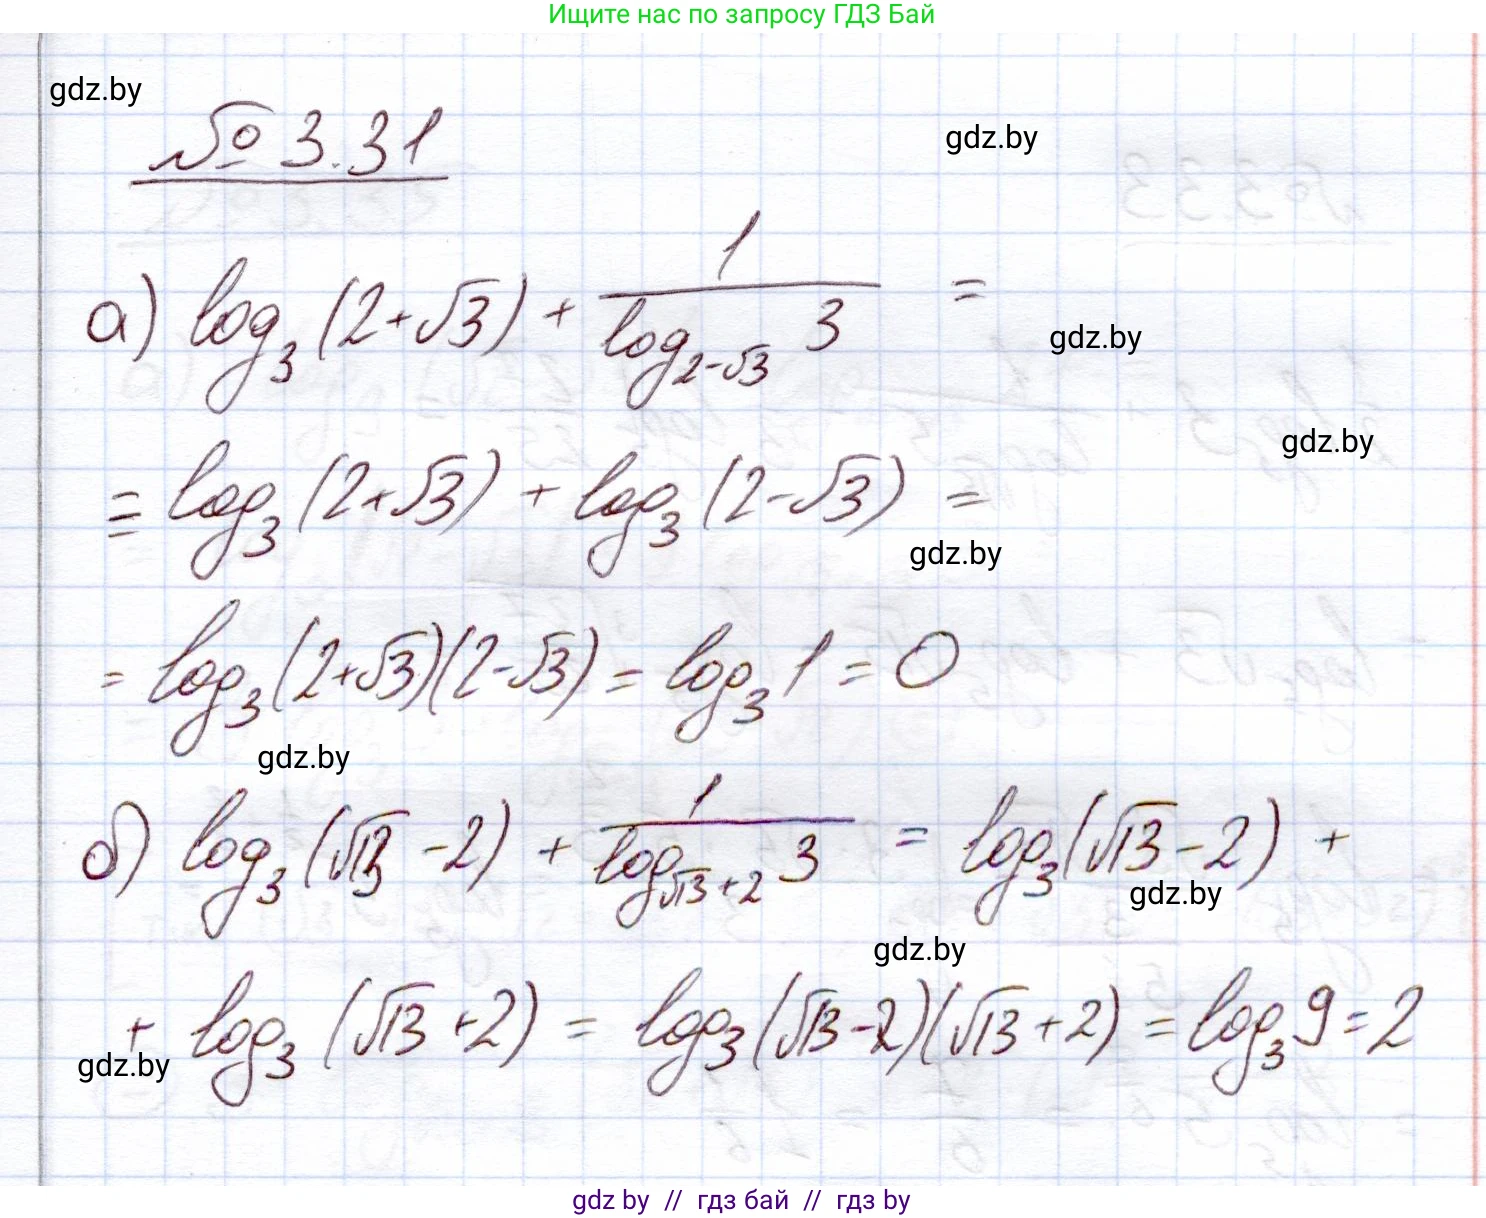 Ищите нас по запросу ГДЗ Бай
gdz.by
№ 3.31
gdz.by
а) log₃(2+√3) + 1/(log₂₋√₃ 3) =
gdz.by
gdz.by
= log₃(2+√3) + log₃(2-√3) =
gdz.by
= log₃(2+√3)(2-√3) = log₃1 = 0
gdz.by
б) log₃(√13 -2) + 1/(log√₁₃₊₂ 3) = log₃(√13-2) +
gdz.by
gdz.by
+ log₃(√13+2) = log₃(√13-2)(√13+2) = log₃9=2
gdz.by
gdz by // гдз бай // гдз by